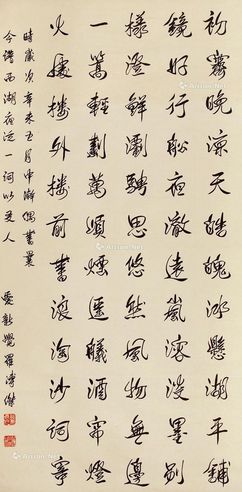 初霽晚涼天皓魄冰懸湖平鋪
鏡好行船夜澈遠嵐溶淡墨剔
樣澄鮮瀏騁思悠然風物無邊
一篙輕劃萬頃煙遙艤酒帘燈
火處樓外樓前書浪淘沙詞
時歲次辛未五月中澣偶書曩
今譜西湖夜泛一詞以人
愛新覺羅溥傑